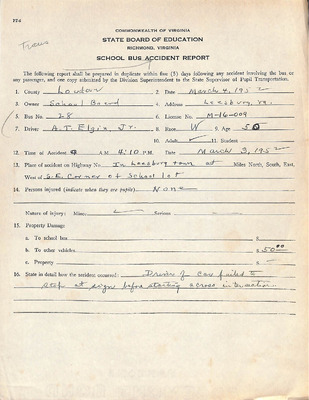 COMMONWEALTH OF VIRGINIA
STATE BOARD OF EDUCATION
RICHMOND, VIRGINIA
SCHOOL BUS ACCIDENT REPORT
The following report shall be prepared in duplicate within five (5) days following any accident involving the bus or
any passenger, and one copy submitted by the Division Superintendent to the State Supervisor of Pupil Transportation.
1. County Loudoun 2. Date March 4, 1952
3. Owner School Board 4. Address Leesburg, Va.
5. Bus No. 28 6. License No. M-16-009
7. Driver: A.T. Elgin, Jr. 8. Race W 9. Age 50
10. Adult ✓ 11. Student
12. Time of Accident A.M. 4:10 P.M. Date March 3, 1952
13. Place of accident on Highway No. In Leesburg town at Miles North, South, East,
West of S.E. Corner of School lot
14. Persons injured (indicate when they are pupils) None
Nature of injury: Minor Serious
15. Property Damage:
a. To school bus $
b. To other vehicles $ 50.00
c. Property $
16. State in detail how the accident occurred: Driver of car failed to
stop at sign before starting across intersection.